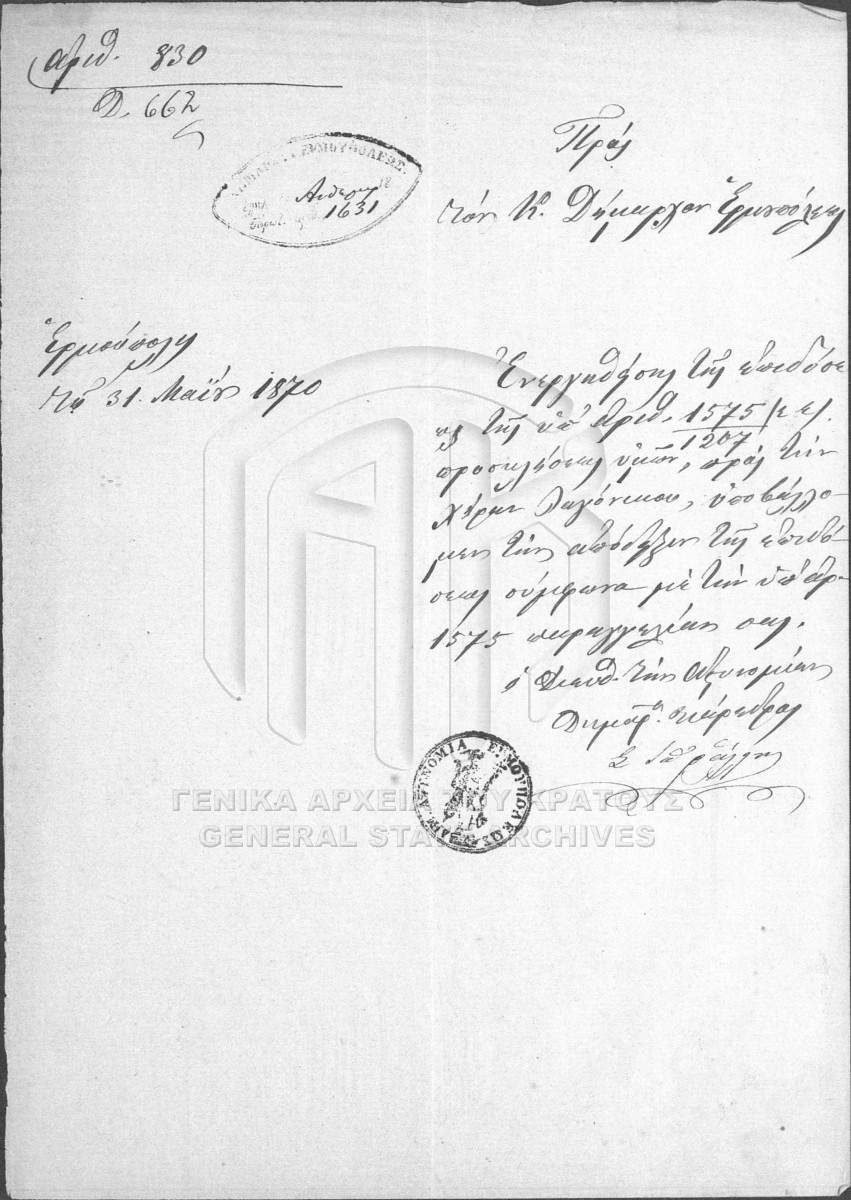 Αριθ. 830
Δ. 662
ΔΗΜΑΡΧΙΑ ΕΡΜΟΥΠΟΛΕΩΣ
18
1631
Πρός
τὸν Κ. Δήμαρχον Ἑρμουπόλεως
Ἑρμούπολις
τῇ 31 Μαΐου 1870
Ἐνεργηθείσης τῆς ἐπιδόσε
ως τῆς ὑπ' ἀριθ. 1575/1207
προσκλήσεως ὑμῶν, πρὸς τὴν
Χήραν ὑποβάλλο
μεν τὴν ἀπόδειξιν τῆς ἐπιδό
σεως σύμφωνα μὲ τὴν ὑπ' ἀρ.
1575 παραγγελίαν σας.
ὁ Διευθ. τὴν Ἀστυνομίαν
Δημαρ. Πάρεδρος
ΔΗΜ. ΑΣΤΥΝΟΜΙΑ ΕΡΜΟΥΠΟΛΕΩΣ
ΓΕΝΙΚΑ ΑΡΧΕΙΑ ΤΟΥ ΚΡΑΤΟΥΣ
GENERAL STATE ARCHIVES